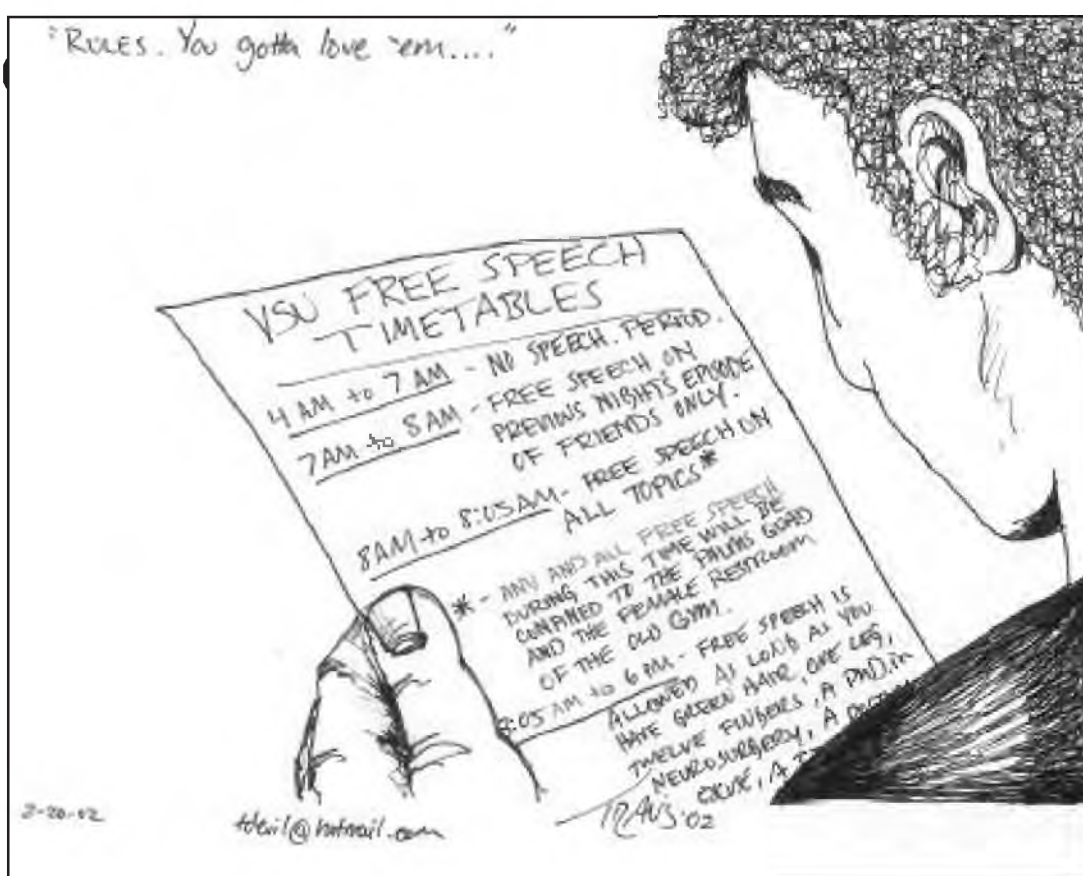 "RULES. You gotta love 'em...."
VSU FREE SPEECH
TIMETABLES
4 AM to 7 AM - NO SPEECH. PERIOD.
7AM to 8AM - FREE SPEECH ON
PREVIOUS NIGHT'S EPISODE
OF FRIENDS ONLY.
8AM to 8:05AM - FREE SPEECH ON
ALL TOPICS*
* - ANY AND ALL FREE SPEECH
DURING THIS TIME WILL BE
CONFINED TO THE PALMS QUAD
AND THE FEMALE RESTROOM
OF THE OLD GYM.
8:05 AM to 6 PM - FREE SPEECH IS
ALLOWED AS LONG AS YOU
HAVE GREEN HAIR, ONE LEG,
TWELVE FINGERS, A PHD. in
NEUROSURGERY, A
EXCUSE, A
2-20-02
@hotmail.com
'02